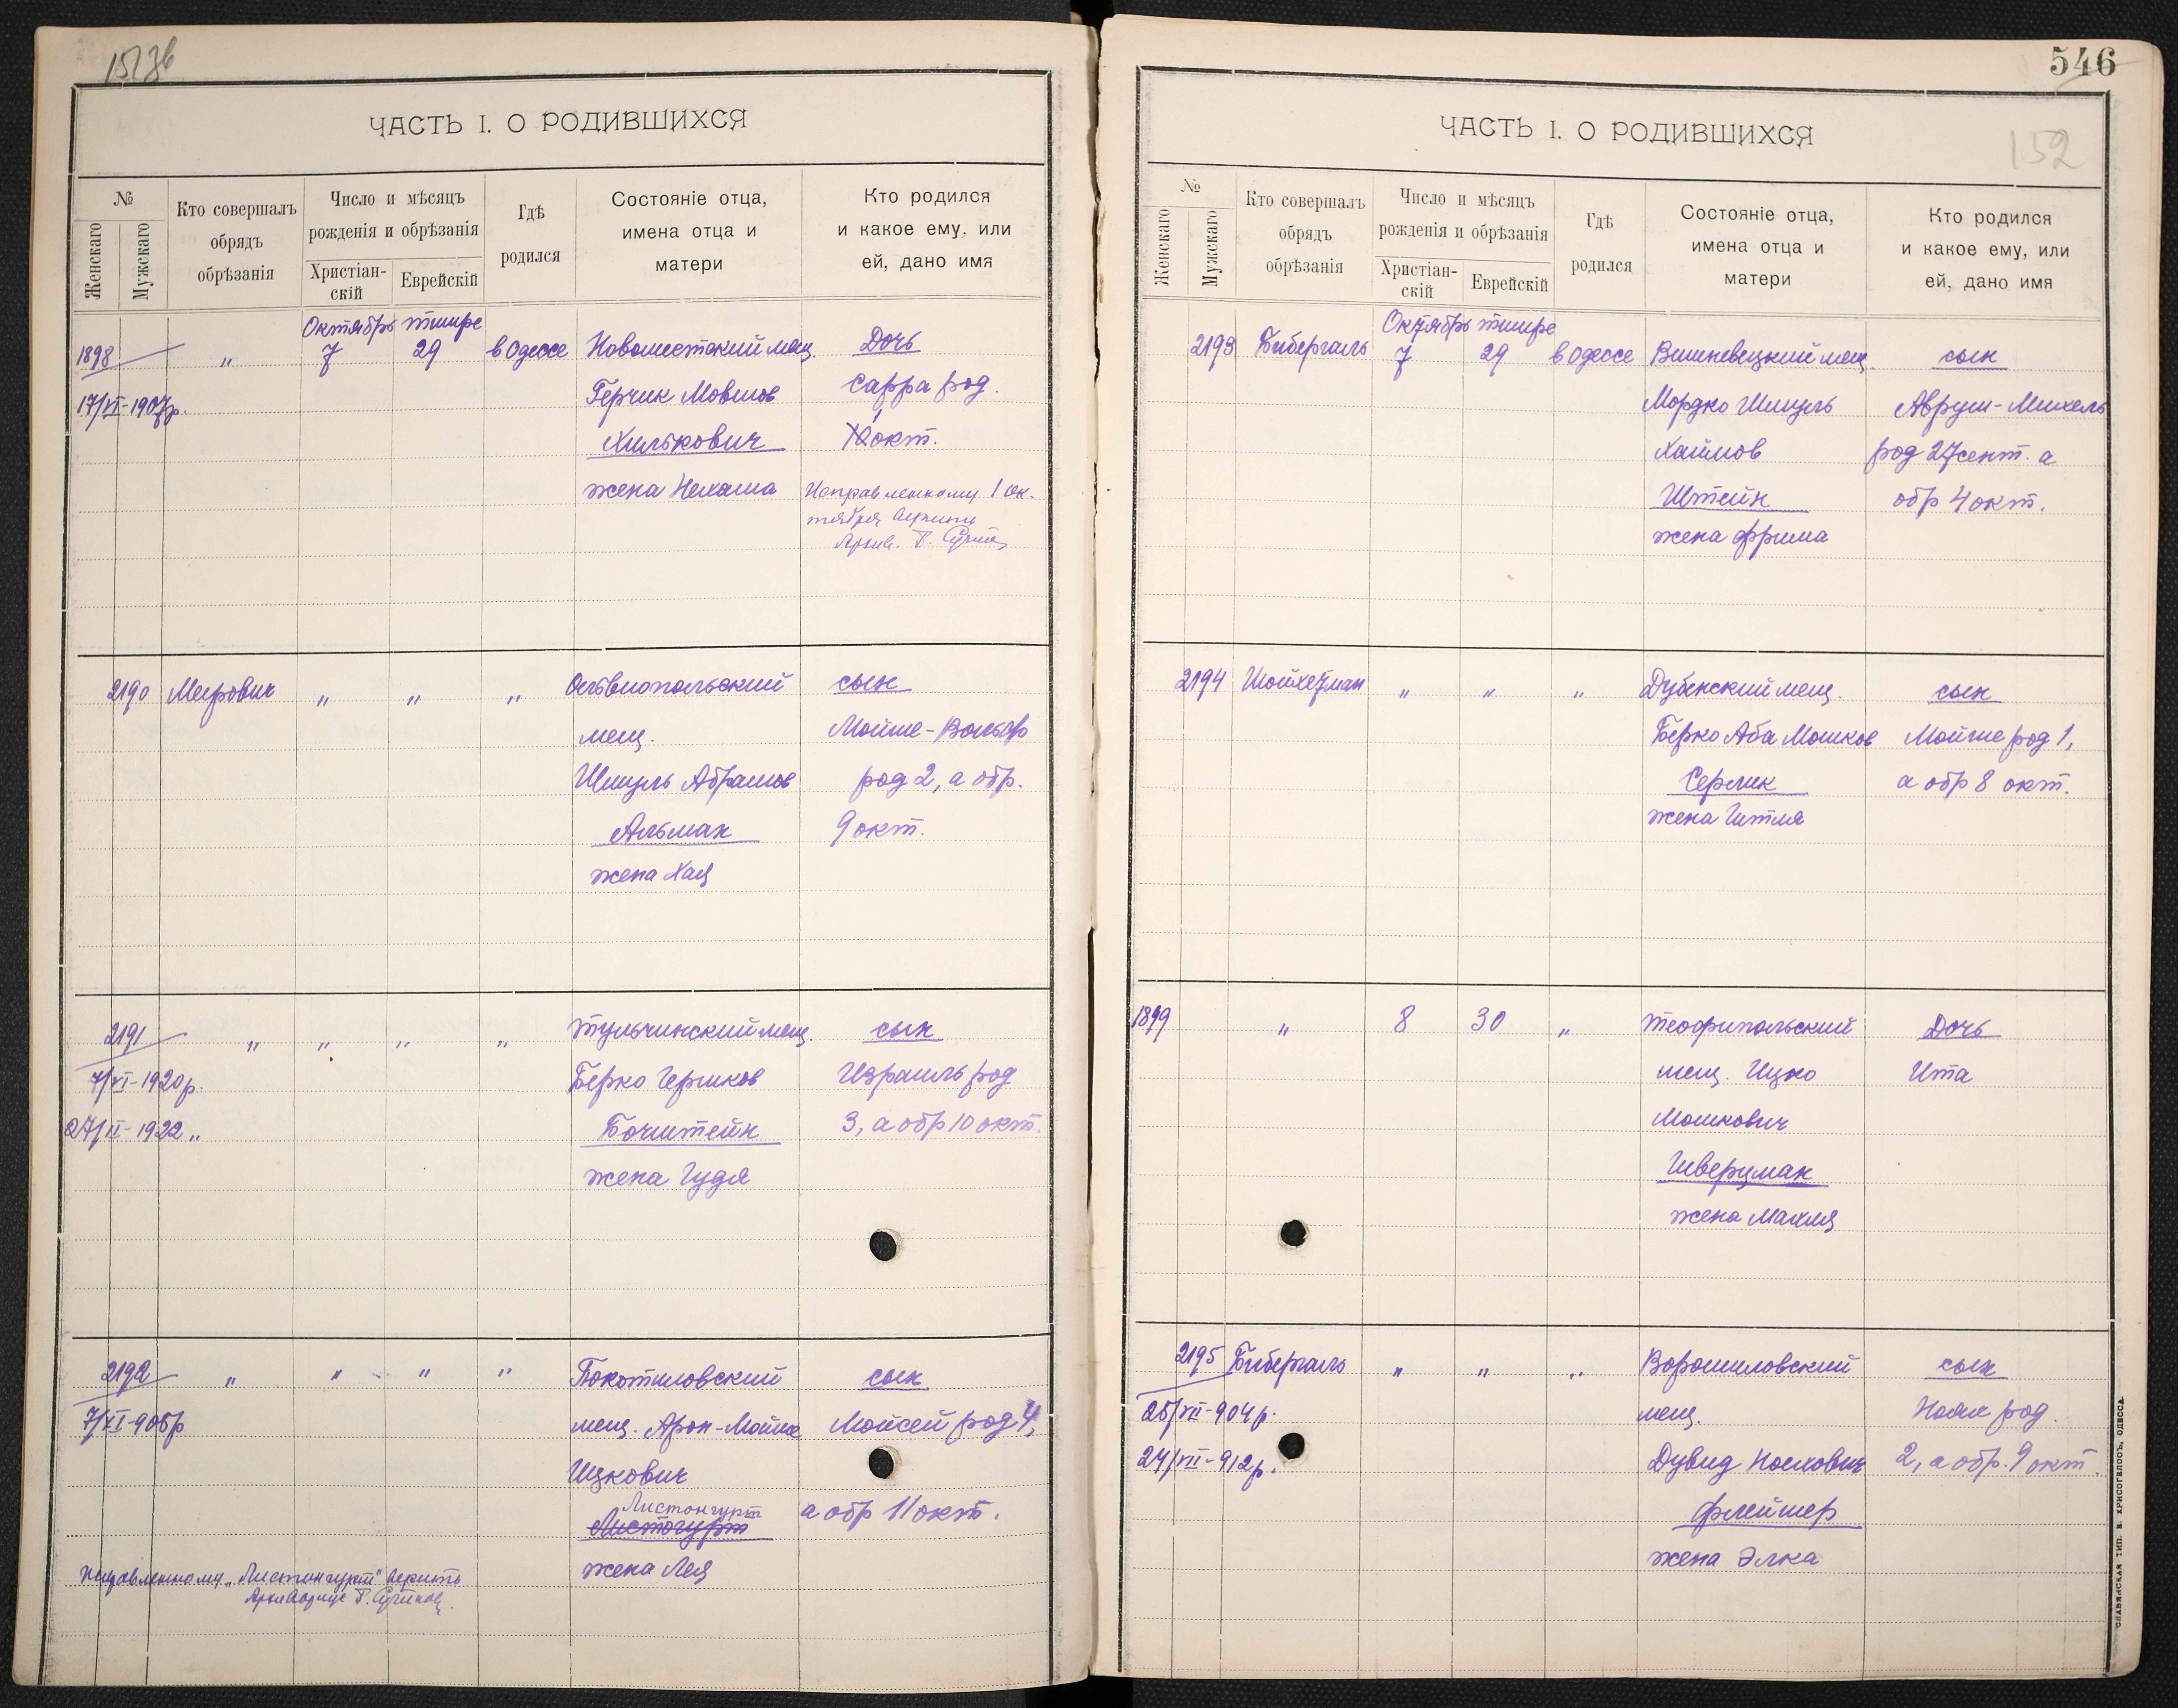 546
152
ЧАСТЬ I. О РОДИВШИХСЯ
№
Женскаго
Мужскаго
Кто совершалъ
обрядъ
обрѣзанія
Число и мѣсяцъ
рожденія и обрѣзанія
Христіан-
скій
Еврейскій
Гдѣ
родился
Состояніе отца,
имена отца и
матери
Кто родился
и какое ему, или
ей, дано имя
Октябрь тишре
1898 „ 7 29 в Одессе Новоместский мещ. Дочь
17/VI-1907р. Герчик Мовшов Сарра род.
Хилькович окт.
жена Нехама Исправленному 1 ок-
тября верить
2190 Меерович „ „ „ Ольвиопольский сын
мещ. Мойше-Вольф
Шмуль Абрамов род 2, а обр.
Альман 9 окт.
жена Хая
2191 „ „ „ „ Тульчинский мещ. сын
7/VI-1920р. Берко Гершков Израиль род
27/II-1922 „ Бочштейн 3, а обр 10 окт.
жена Гудя
2192 „ „ „ „ Покотиловский сын
7/XI-906р мещ. Арон-Мойше Мойсей род 4,
Ицкович
Листонгурт а обр 11 окт.
Листогурт
жена Лея
Исправленному „Листонгурт" верить
ЧАСТЬ I. О РОДИВШИХСЯ
№
Женскаго
Мужскаго
Кто совершалъ
обрядъ
обрѣзанія
Число и мѣсяцъ
рожденія и обрѣзанія
Христіан-
скій
Еврейскій
Гдѣ
родился
Состояніе отца,
имена отца и
матери
Кто родился
и какое ему, или
ей, дано имя
Октябрь тишре
2193 Бибергаль 7 29 в Одессе Вишневецкий мещ. сын
Мордко Шмуль Аврум-Михель
Хаимов род 27 сент. а
Штейн обр 4 окт.
жена Фрима
2194 Шойхетман „ „ „ Дубенский мещ. сын
Берко Аба Мошков Мойше род 1,
Серлик а обр 8 окт.
жена Гитля
1899 „ 8 30 „ Теофипольский Дочь
мещ. Ицко Ита
Мошкович
Шверцман
жена Махля
2195 Бибергаль „ „ „ Ворошиловский сын
25/VII-904р. мещ. Ноях род.
24/VII-912р. Дувид Ноехович 2, а обр. 9 окт.
Флейшер
жена Элка
СЛАВЯНСКАЯ ТИП. Н. ХРИСОГЕЛОСЪ, ОДЕССА